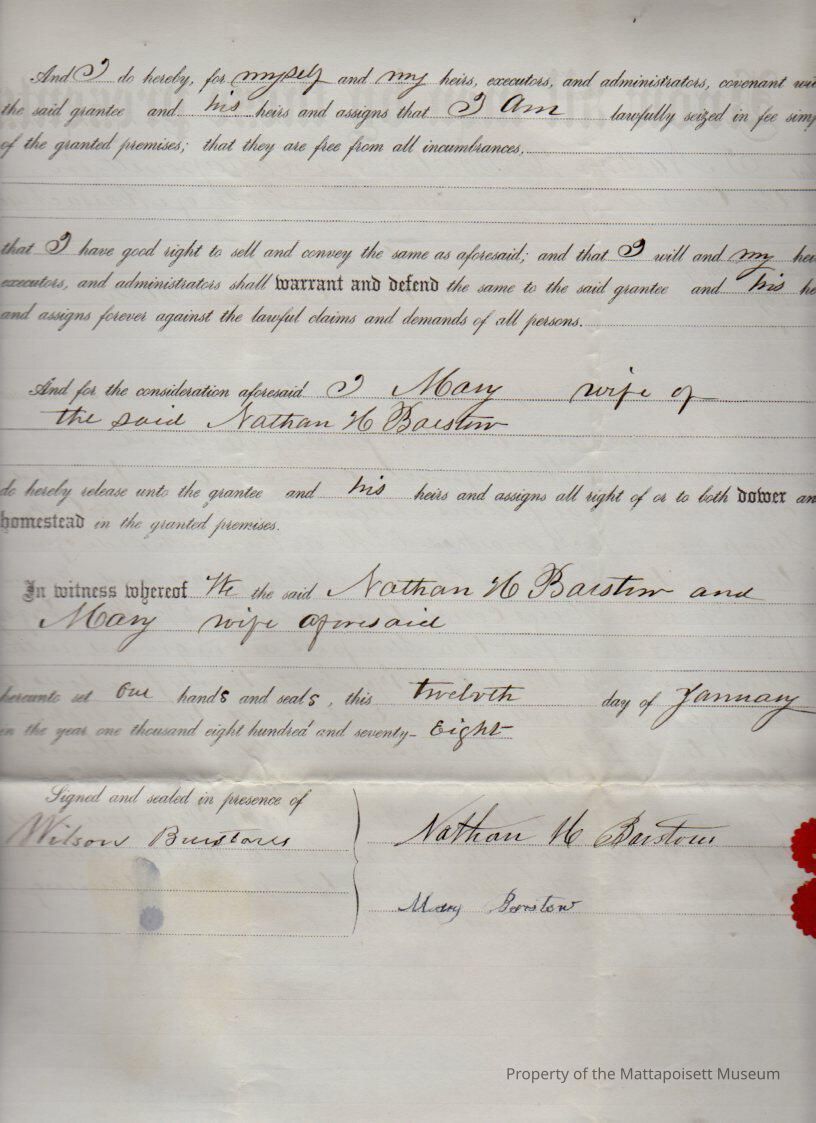 And I do hereby, for myself and my heirs, executors, and administrators, covenant wi
the said grantee and his heirs and assigns that I Am lawfully seized in fee simp
of the granted premises; that they are free from all incumbrances,
that I have good right to sell and convey the same as aforesaid; and that I will and my hei
executors, and administrators shall warrant and defend the same to the said grantee and his he
and assigns forever against the lawful claims and demands of all persons.
And for the consideration aforesaid I Mary wife of
the said Nathan H Barstow
do hereby release unto the grantee and his heirs and assigns all right of or to both dower an
homestead in the granted premises.
In witness whereof We the said Nathan H Barstow and
Mary wife aforesaid
hereunto set our hands and seals, this twelvth day of January
in the year one thousand eight hundred and seventy-Eight
Signed and sealed in presence of
Wilson Barstow
Nathan H Barstow
Mary Barstow
Property of the Mattapoisett Museum